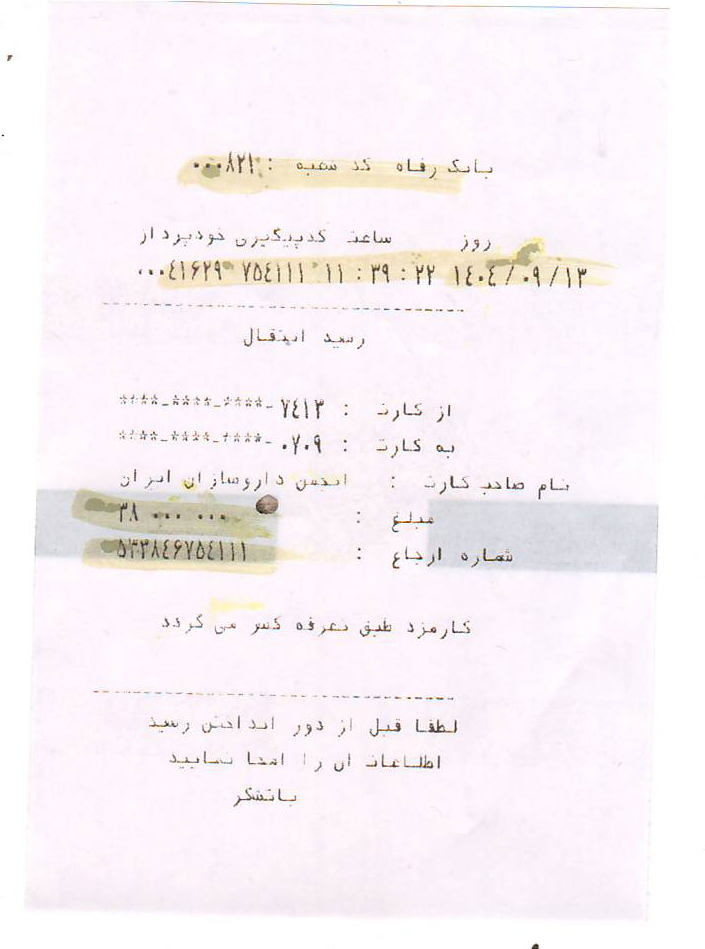 بانک رفاه کد شعبه : ۰۰۰۸۲۱
روز ساعت کدپیگیری خودپرداز
۱۴۰۴/۰۹/۱۳ ۱۱:۳۹:۲۲ ۷۵۴۱۱۱ ۰۰۰۴۱۶۲۹
رسید انتقال
از کارت : ****-****-****-۷۴۱۳
به کارت : ****-****-****-۰۷۰۹
نام صاحب کارت : انجمن داروسازان ایران
مبلغ : ۳۸ ۰۰۰ ۰۰۰
شماره ارجاع : ۵۳۳۸۴۶۷۵۴۱۱۱
کارمزد طبق تعرفه کسر می گردد
لطفا قبل از دور انداختن رسید
اطلاعات ان را امحا نمایید
باتشکر